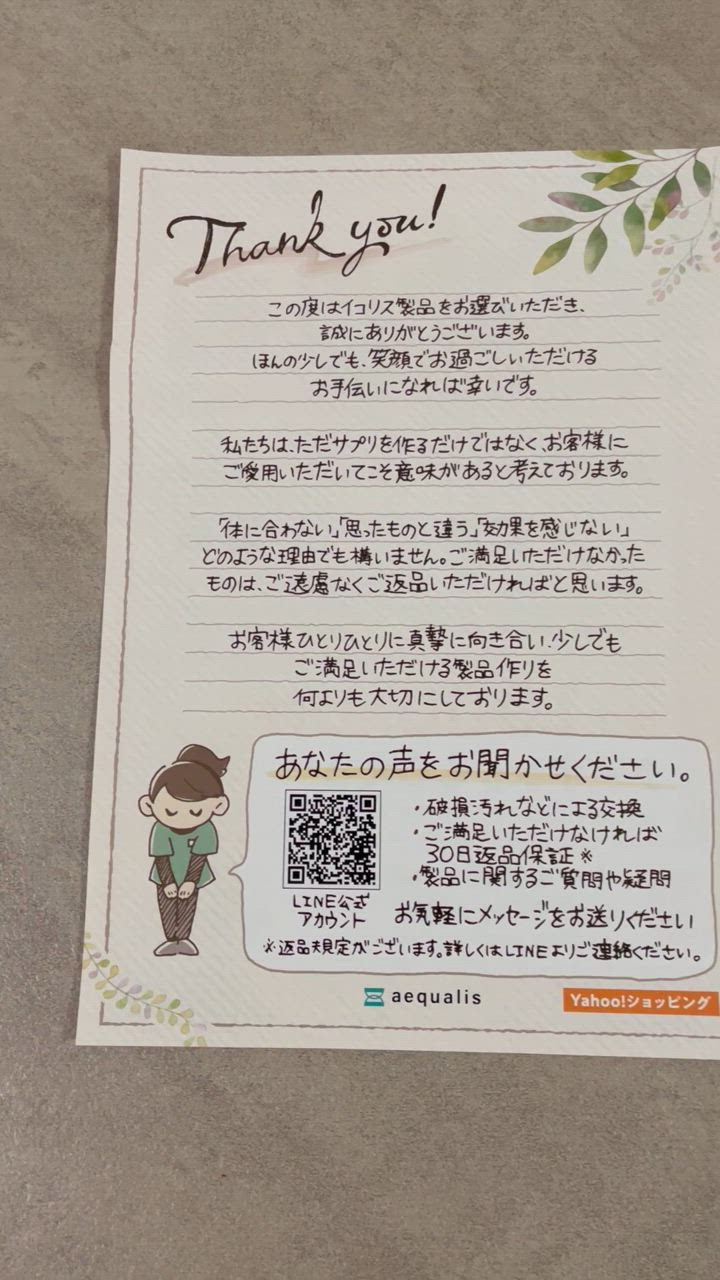 Thank you!
この度はイコリス製品をお選びいただき、
誠にありがとうございます。
ほんの少しでも、笑顔でお過ごしいただける
お手伝いになれば幸いです。
私たちは、ただサプリを作るだけではなく、お客様に
ご愛用いただいてこそ意味があると考えております。
「体に合わない」「思ったものと違う」「効果を感じない」
どのような理由でも構いません。ご満足いただけなかった
ものは、ご遠慮なくご返品いただければと思います。
お客様ひとりひとりに真摯に向き合い、少しでも
ご満足いただける製品作りを
何よりも大切にしております。
あなたの声をお聞かせください。
・破損汚れなどによる交換
・ご満足いただけなければ
30日返品保証※
・製品に関するご質問や疑問
LINE公式
アカウント
お気軽にメッセージをお送りください
※返品規定がございます。詳しくはLINEよりご連絡ください。
aequalis
Yahoo!ショッピング